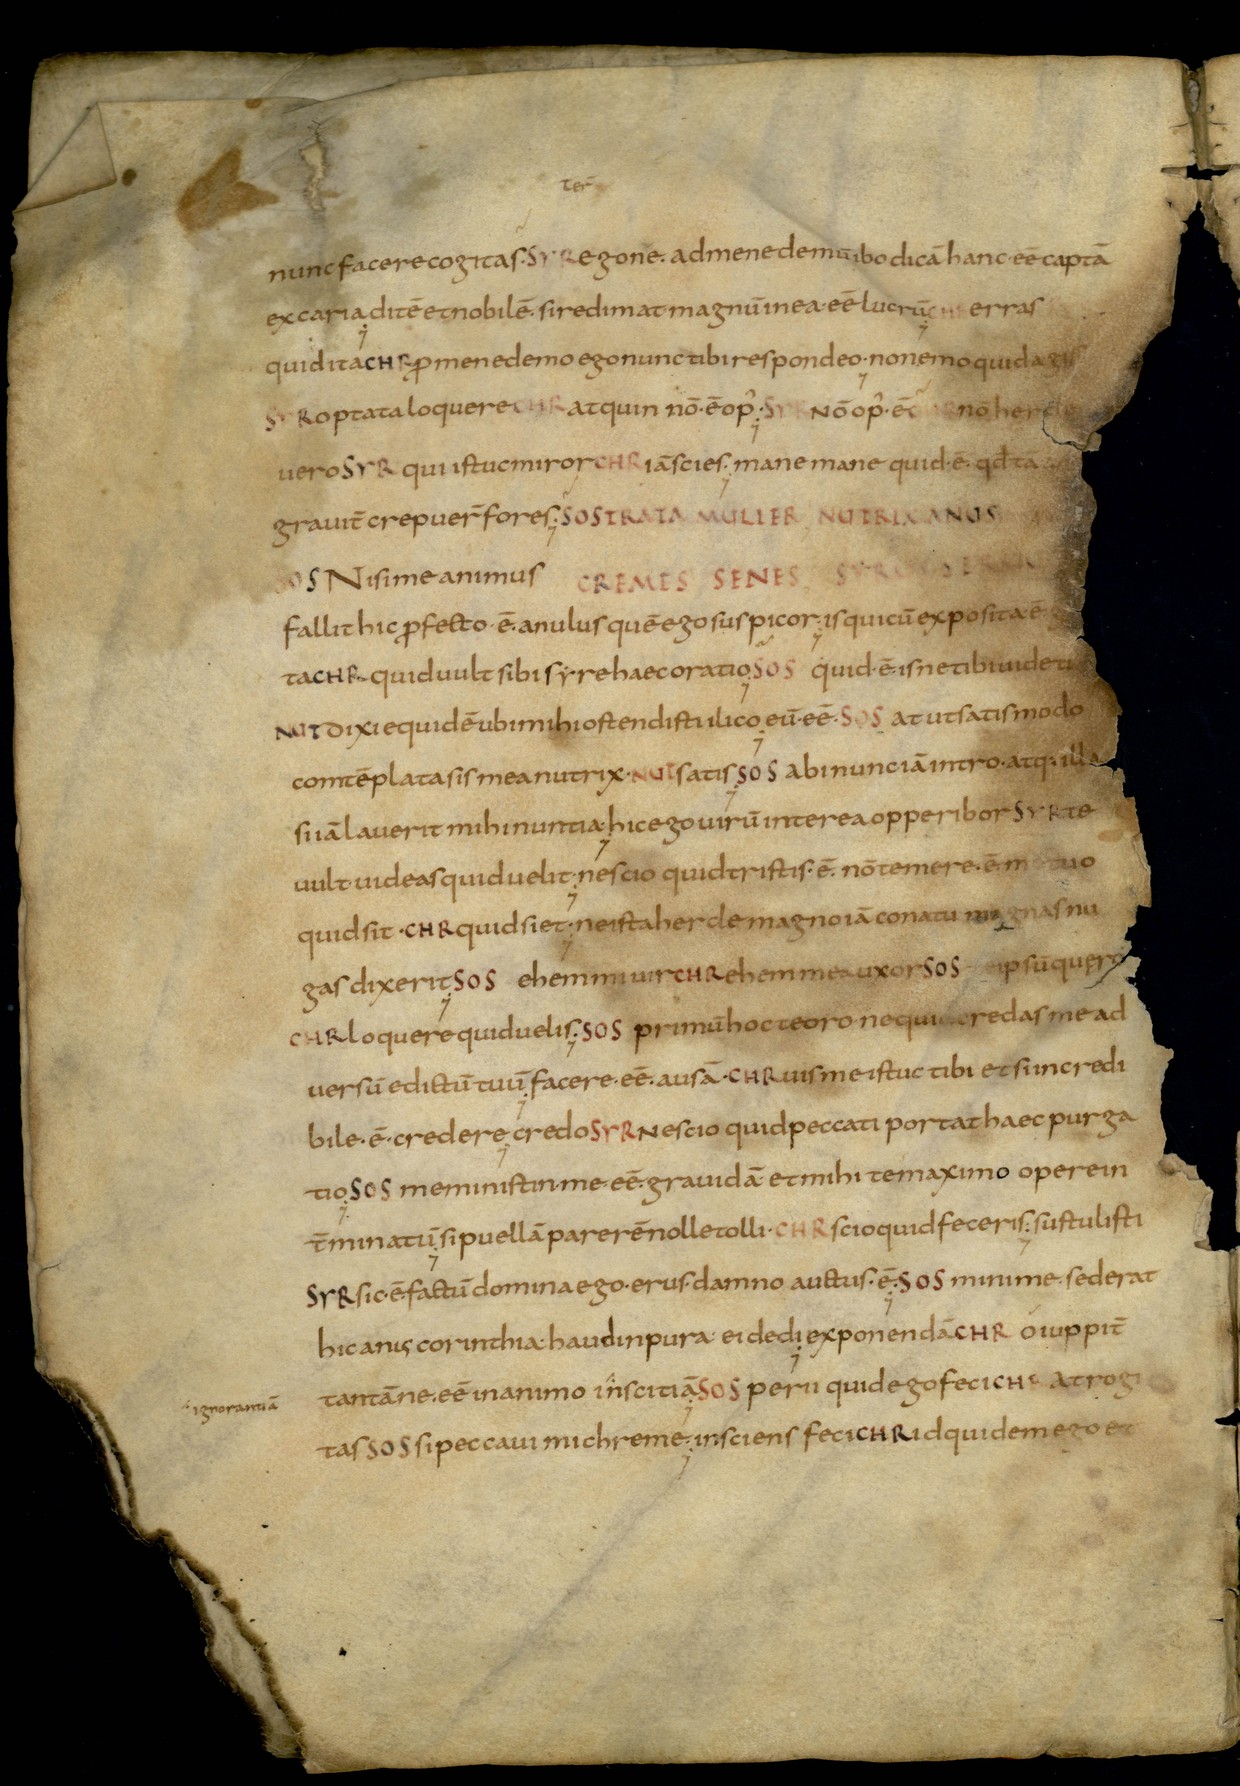 Ter̄
nunc facere cogitas. SYR egone. ad menedemū ibo dicā hanc. eē captā
ex caria ditē et nobilē. si redimat magnū inea. eē lucrū. erras
quid ita CHR ꝓ menedemo ego nunc tibi respondeo. non emo quid agis
SYR optata loquere CHR atquin nō. ē op̕. SYR Nō op̕. ē nō hercle
uero SYR qui istuc miror CHR iā scies. mane mane quid. ē. qđ tā
grauit̄ crepuer̄ fores. SOSTRATA MULIER NUTRIX ANUS
SOS Nisi me animus CREMES SENES SYRUS
fallit hic ꝓfecto. ē. anulus quē ego suspicor. is quicū exposita. ē
ta CHR quid uult sibi syre haec oratio SOS quid. ē. isne tibi uidetur
NUT Dixi equidē ubi mihi ostendisti ilico eū. eē. SOS at ut satis modo
comtēplata sis mea nutrix. NUT satis SOS abi nunc iā intro. atq. illa
si iā lauerit mihi nuntia. hic ego uirū interea opperibor SYR te
uult uideas quid uelit. nescio quid tristis. ē. nō temere. ē. metuo
quid sit. CHR quid siet. ne ista hercle magno iā conatu magnas nu
gas dixerit SOS ehem mi uir CHR ehem mea uxor SOS ipsū quero
CHR loquere quid uelis. SOS primū hoc te oro ne quid credas me ad
uersū edictū tuū facere. eē. ausā. CHR uis me istuc tibi et si incredi
bile. ē. credere credo SYR Nescio quid peccati portat haec purga
tio SOS meministin. me. eē. grauidā et mihi te maximo opere in
t̄minatū. si puellā parerē nolle tolli. CHR scio quid feceris. sustulisti
SYR sic. ē. factū domina ego. erus. damno auctus. ē. SOS minime. sed erat
hic anus corinthia. haud inpura. ei dedi exponendā CHR o iuppit̄
tantāne. eē in animo inscitiā SOS perii quid ego feci CHR at rogi
ignorantiā
tas SOS si peccaui mi chreme. insciens feci CHR id quidem ego et